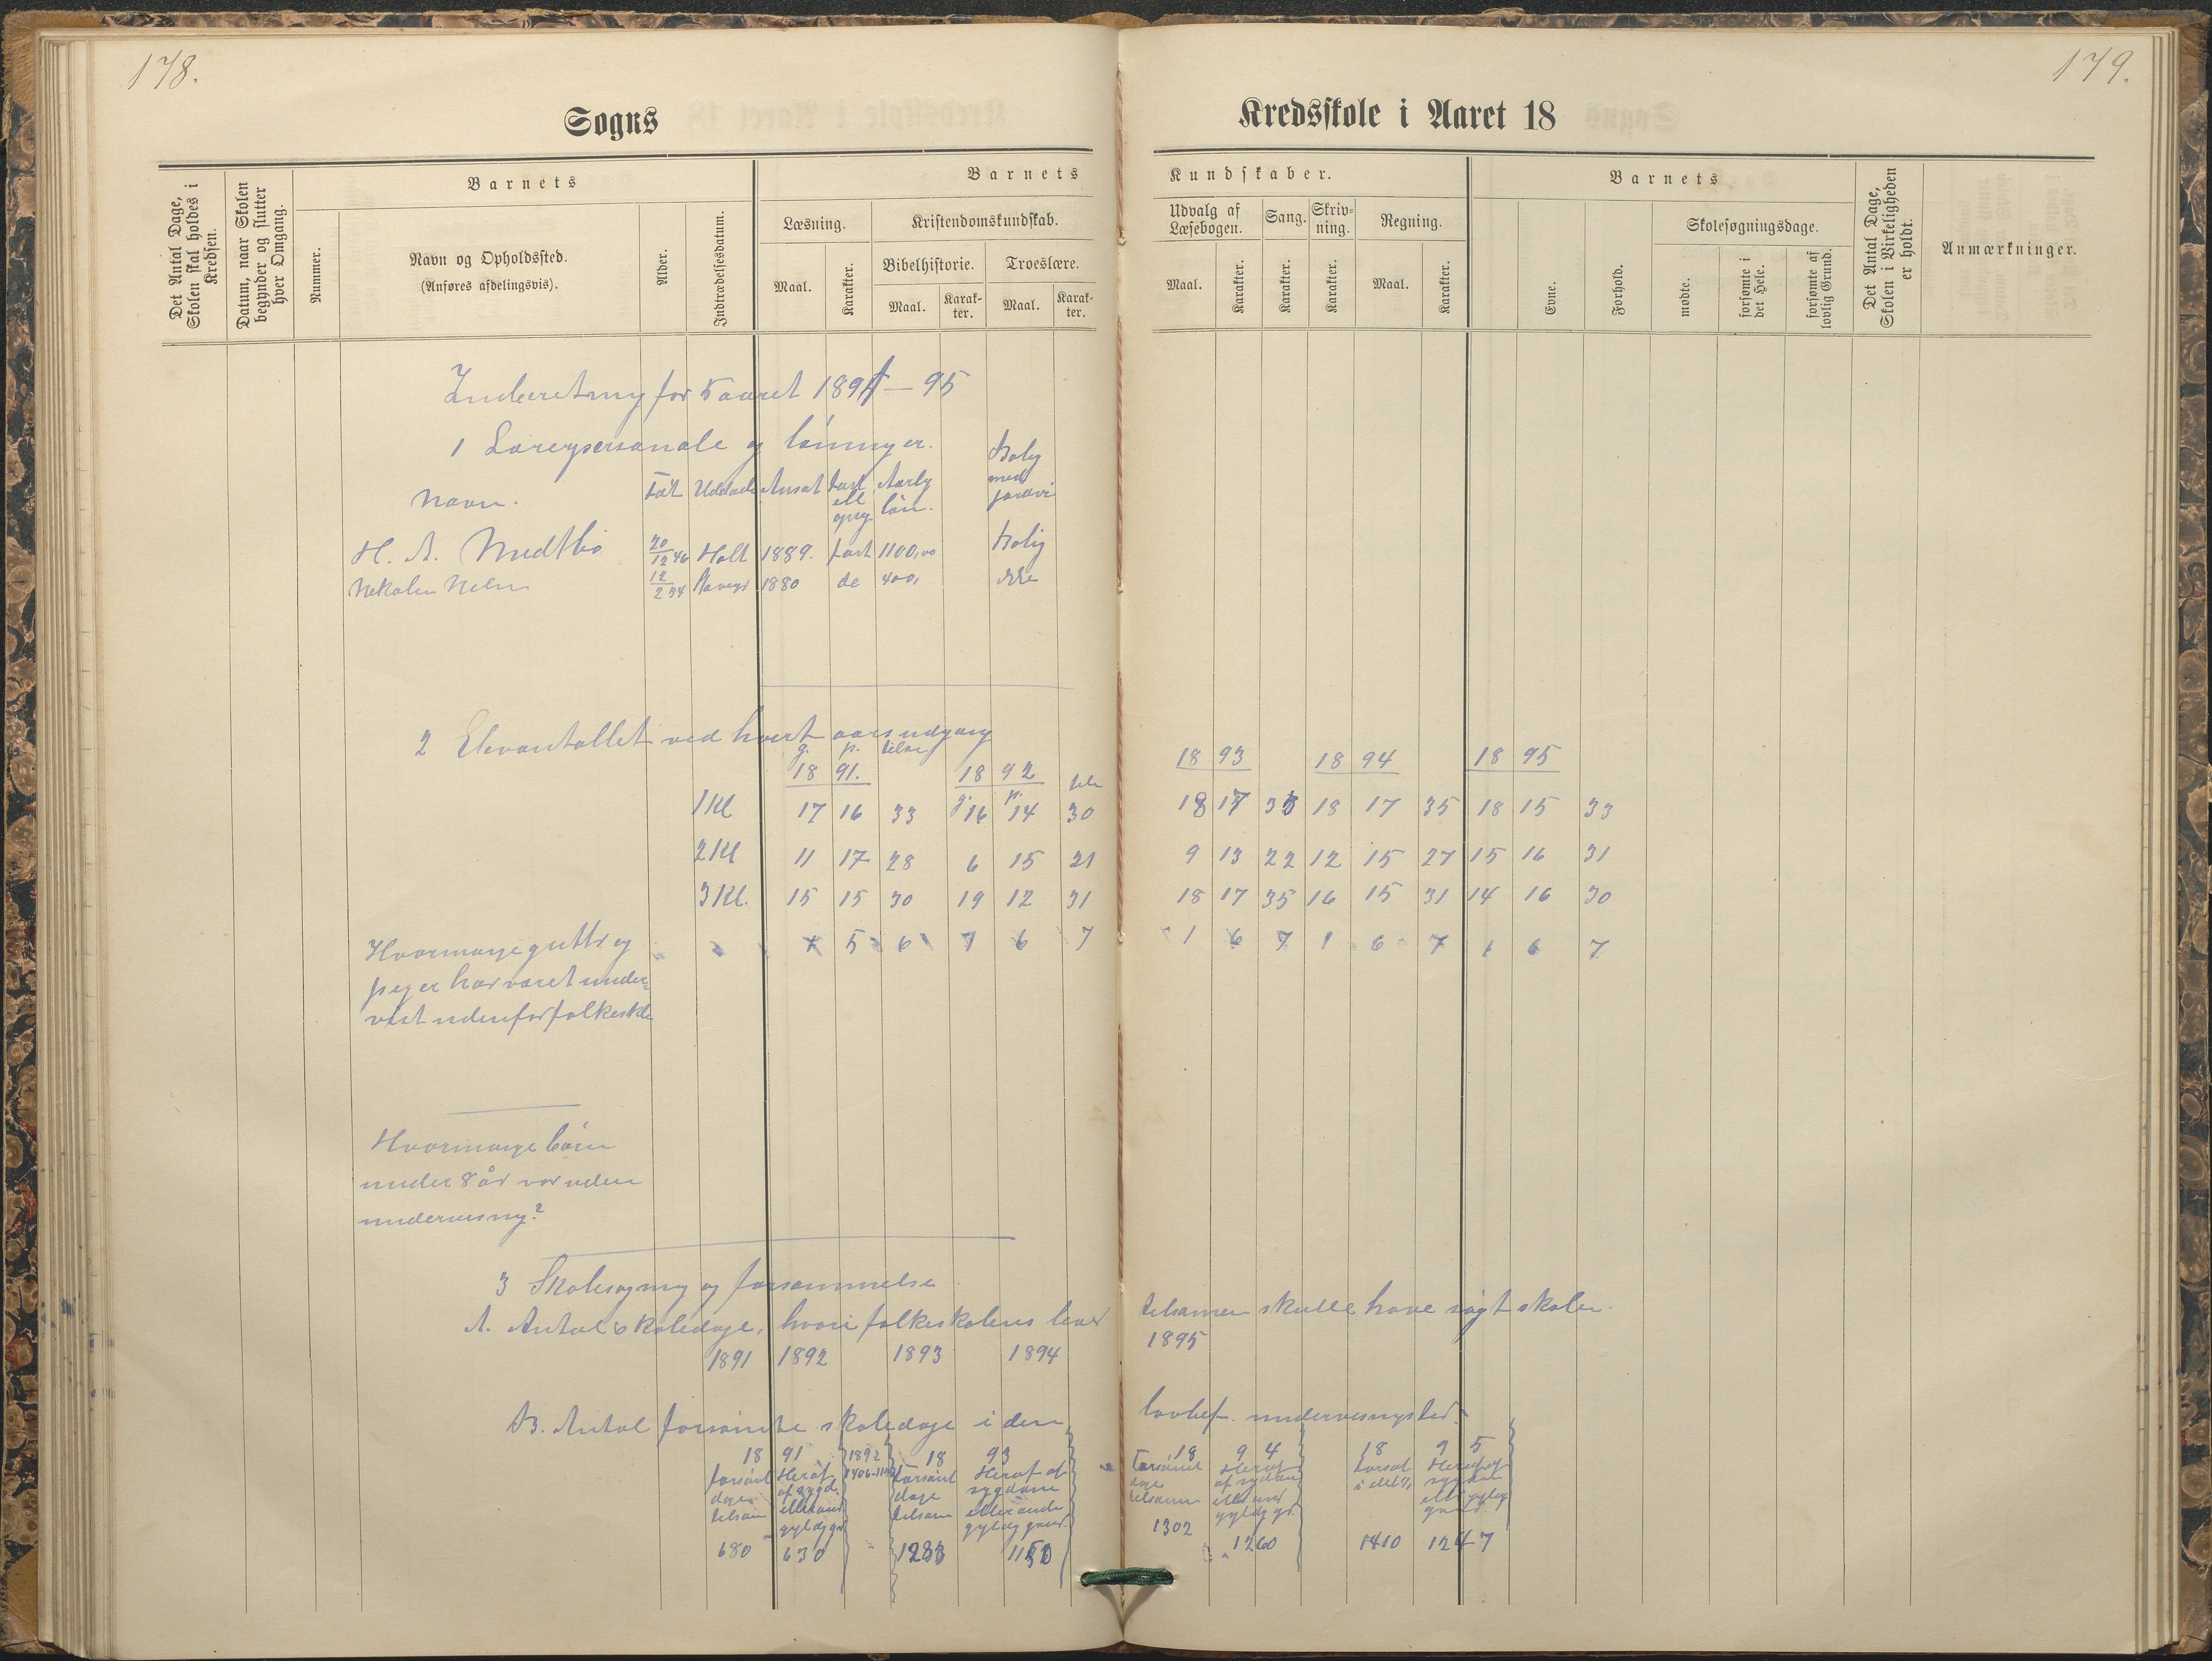 178.
179.
Sogns
Kredsskole i Aaret 18
Det Antal Dage, Skolen skal holdes i Kredsen.
Datum, naar Skolen begynder og slutter hver Omgang.
Barnets
Nummer.
Navn og Opholdssted.
(Anføres afdelingsvis).
Alder.
Indtrædelsesdatum.
Barnets
Læsning.
Maal.
Karakter.
Kristendomskundskab.
Bibelhistorie.
Maal.
Karak-
ter.
Troeslære.
Maal.
Karak-
ter.
Kundskaber.
Udvalg af
Læsebogen.
Maal.
Karakter.
Sang.
Karakter.
Skriv-
ning.
Karakter.
Regning.
Maal.
Karakter.
Barnets
Evne.
Forhold.
Skolesøgningsdage.
mødte.
forsømte i
det Hele.
forsømte af
lovlig Grund.
Det Antal Dage,
Skolen i Virkeligheden
er holdt.
Anmærkninger.
Inderetning for 5 aaret 1891 — 95
1 Lærerpersonale og lønninger.
Navn. Født Uddan Ansat fast Aarlig Bolig
ell løn. med
opsg jordvei
H. A. Midtbø 20/12 46 Holt 1889. fast 1100,00 Bolig
Nikolai Nelsen 12/2 34 1880 do 400, ikke
2 Elevantallet ved hvert aars udgang
g. p. tilsa
18 91. 18 92 tils 18 93 18 94 18 95
g. p.
1 Kl 17 16 33 16 14 30 18 17 35 18 17 35 18 15 33
2 Kl 11 17 28 6 15 21 9 13 22 12 15 27 15 16 31
3 Kl. 15 15 30 19 12 31 18 17 35 16 15 31 14 16 30
Hvormange gutter og 1 5 6 1 6 7 1 6 7 1 6 7 1 6 7
piger har været under-
vist udenfor folkeskolen
Hvormange børn
under 8 år var uden
undervisning?
3 Skolesøgning og forsømmelse
A. Antal skoledage, hvori folkeskolens elever tilsammen skulle have søgt skolen.
1891 1892 1893 1894 1895
B. Antal forsømte skoledage i den lovbef. undervisningstid.
18 91 1892 18 93 18 94 18 95
forsømt Heraf forsømt Heraf af Forsømt Heraf forsømt Heraf af
dage af sygd. dage sygdom dage af sygdom i det h. sygdom
tilsam eller and tilsam eller anden tilsamm eller and eller gyldig
gyldig gr. gyldig grund. gyldig gr. grund.
680 630 1283 1150 1302 1260 1410 1247